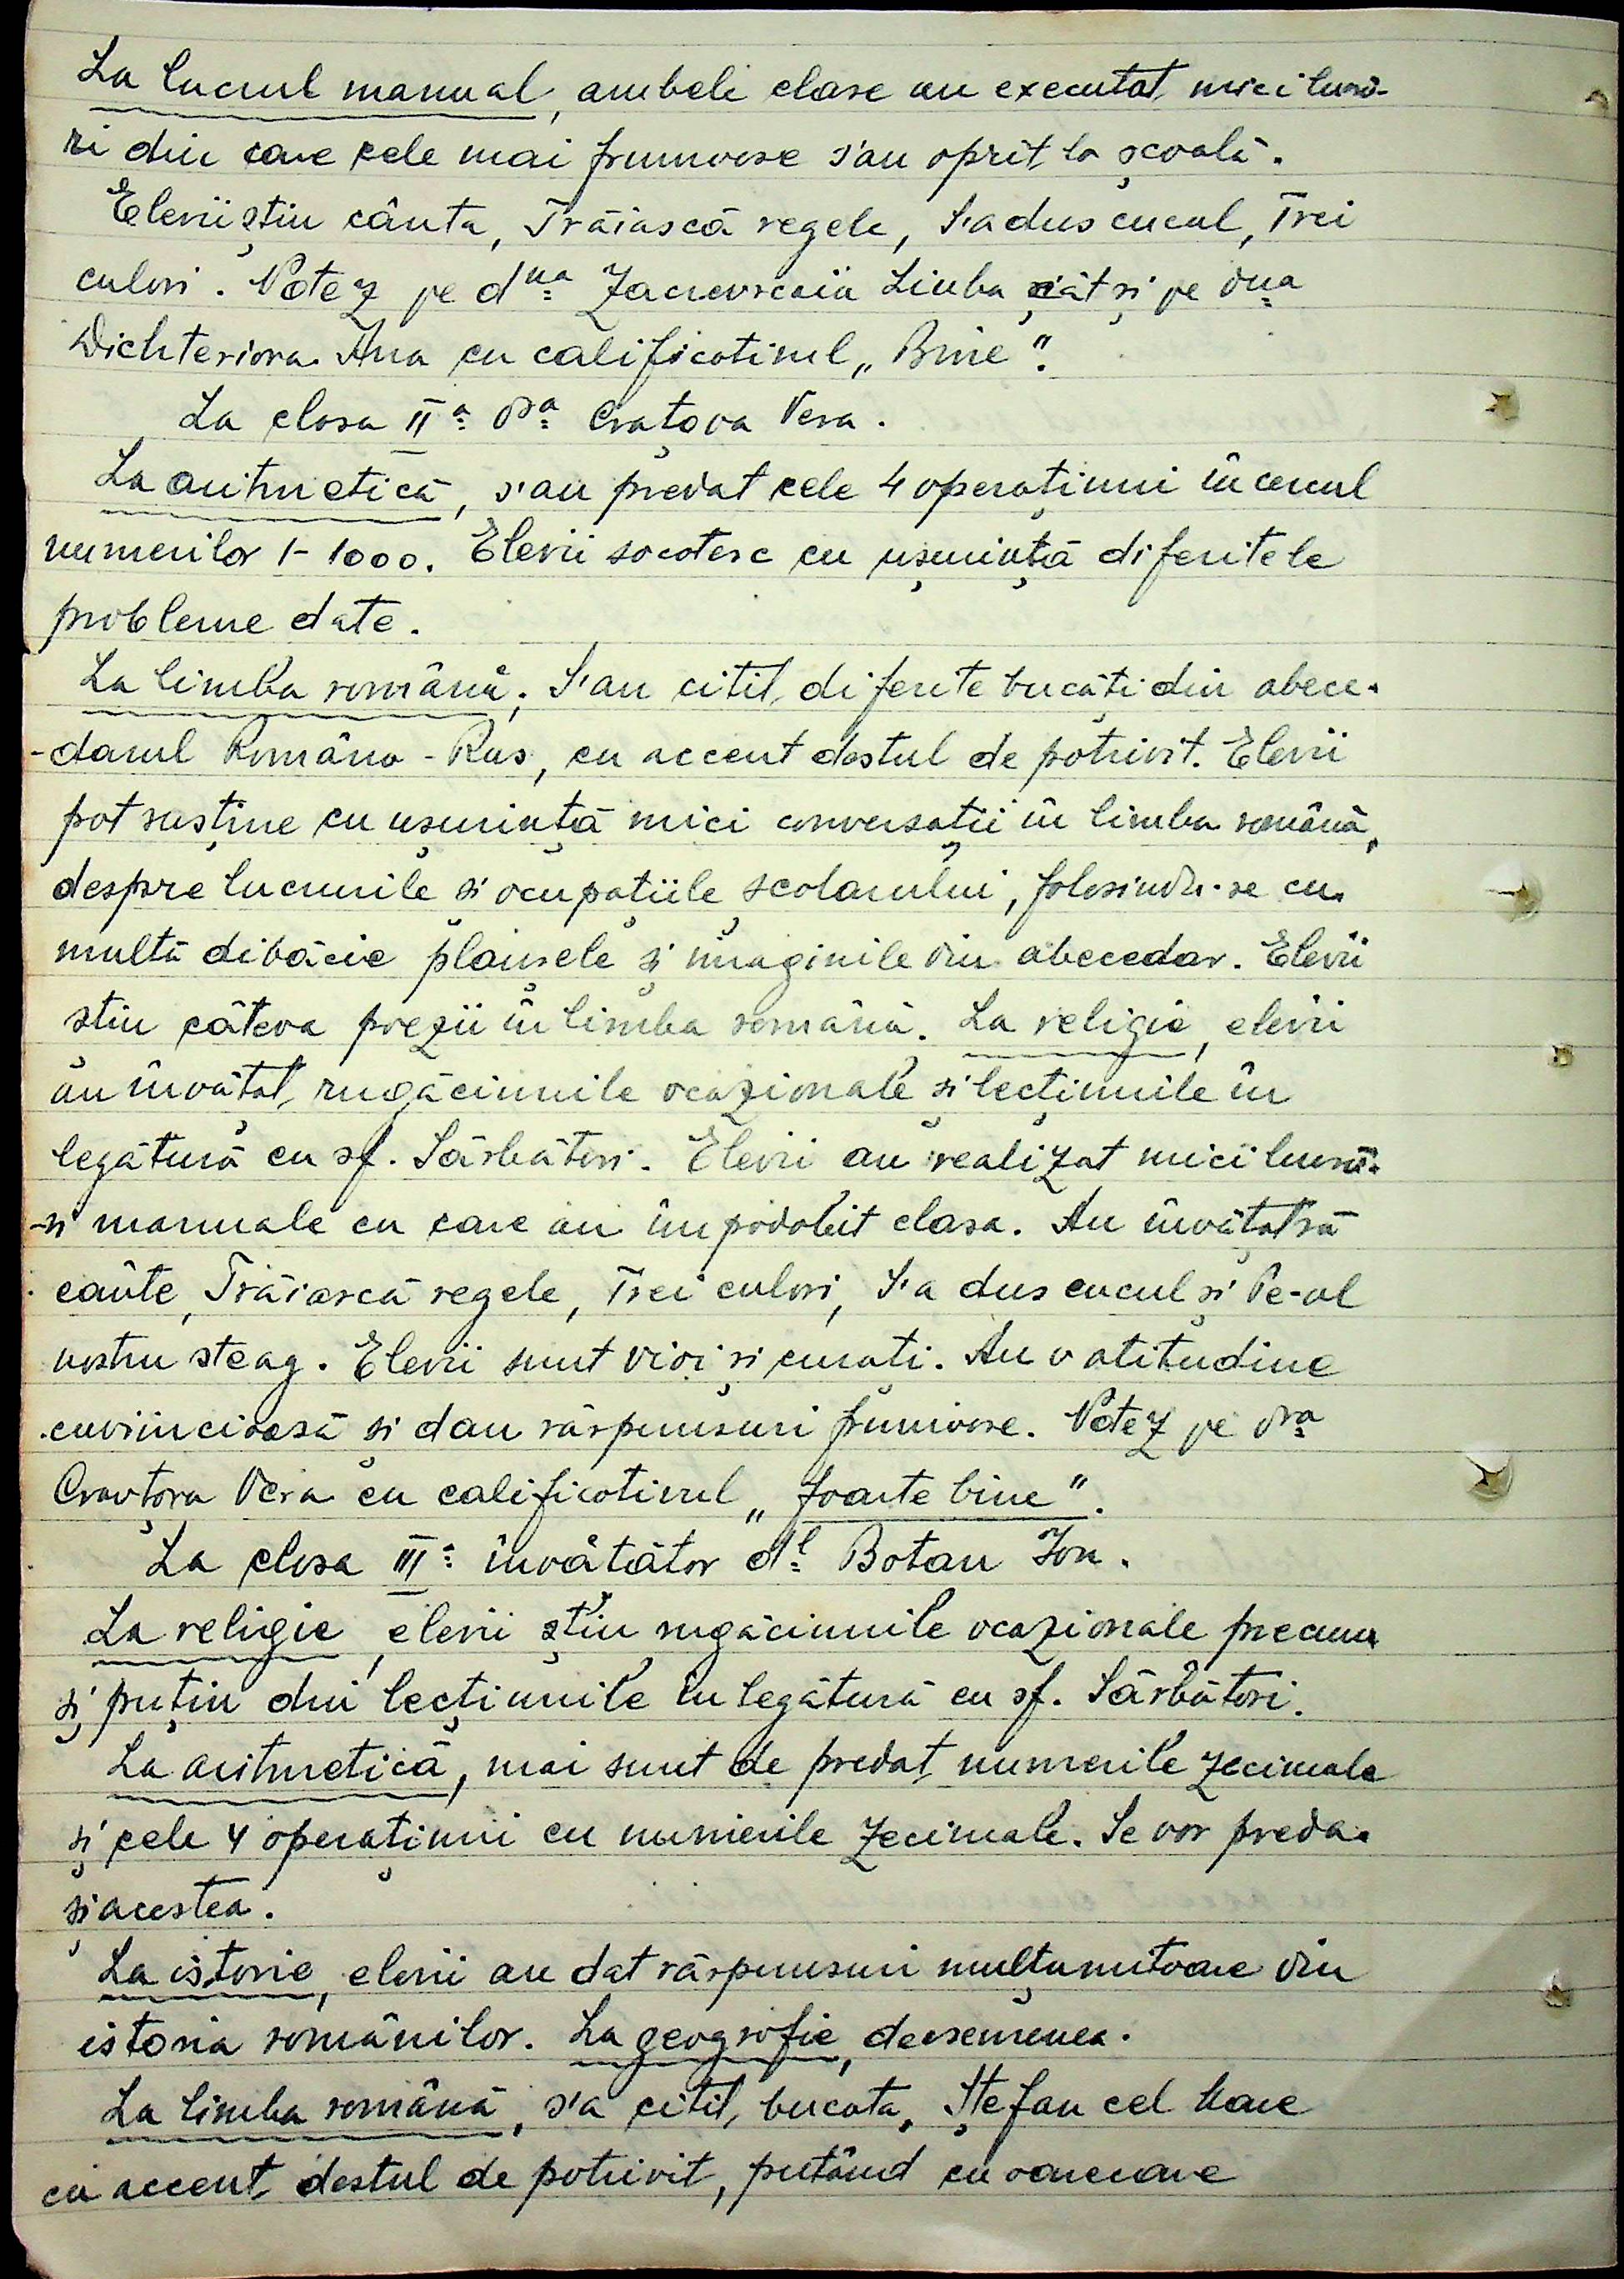 La lucrul manual, ambele clase au executat mici lucră-
ri din care cele mai frumoase s'au oprit la școală.
Elevii știu cânta, Trăiască regele, S'a dus cucul, Trei
culori. Notez pe dna Zacrevscaia Liuba cât și pe dna
Dichteriova Ana cu calificativul „Bine".
La clasa IIa dra Crațova Vera.
La aritmetică, s'au predat cele 4 operațiuni în cercul
numerilor 1-1000. Elevii socotesc cu ușurință diferitele
probleme date.
La limba română, S'au citit, diferite bucăți din abece-
-darul Româno-Rus, cu accent destul de potrivit. Elevii
pot susține cu ușurință mici conversații în limba română,
despre lucrurile și ocupațiile școlarului, folosindu-se cu
multă dibăcie planșele și imaginile din abecedar. Elevii
știu câteva poezii în limba română. La religie, elevii
au învățat, rugăciunile ocazionale și lecțiunile în
legătură cu sf. Sărbători. Elevii au realizat mici lucră-
-ri manuale cu care au împodobit clasa. Au învățat să
cânte, Trăiască regele, Trei culori, S'a dus cucul și Pe-al
nostru steag. Elevii sunt vioi și curați. Au o atitudine
cuviincioasă și dau răspunsuri frumoase. Notez pe dra
Cravțova Vera cu calificativul „foarte bine".
La clasa III-a învățător dl Botan Ion.
La religie, elevii știu rugăciunile ocazionale precum
și puțin din lecțiunile în legătură cu sf. Sărbători.
La aritmetică, mai sunt de predat numerile zecimale
și cele 4 operațiuni cu numerile zecimale. Se vor preda
și acestea.
La istorie, elevii au dat răspunsuri mulțumitoare din
istoria românilor. La geografie, deasemenea.
La limba română, s'a citit, bucata, Ștefan cel Mare
cu accent destul de potrivit, putând cu oarecare